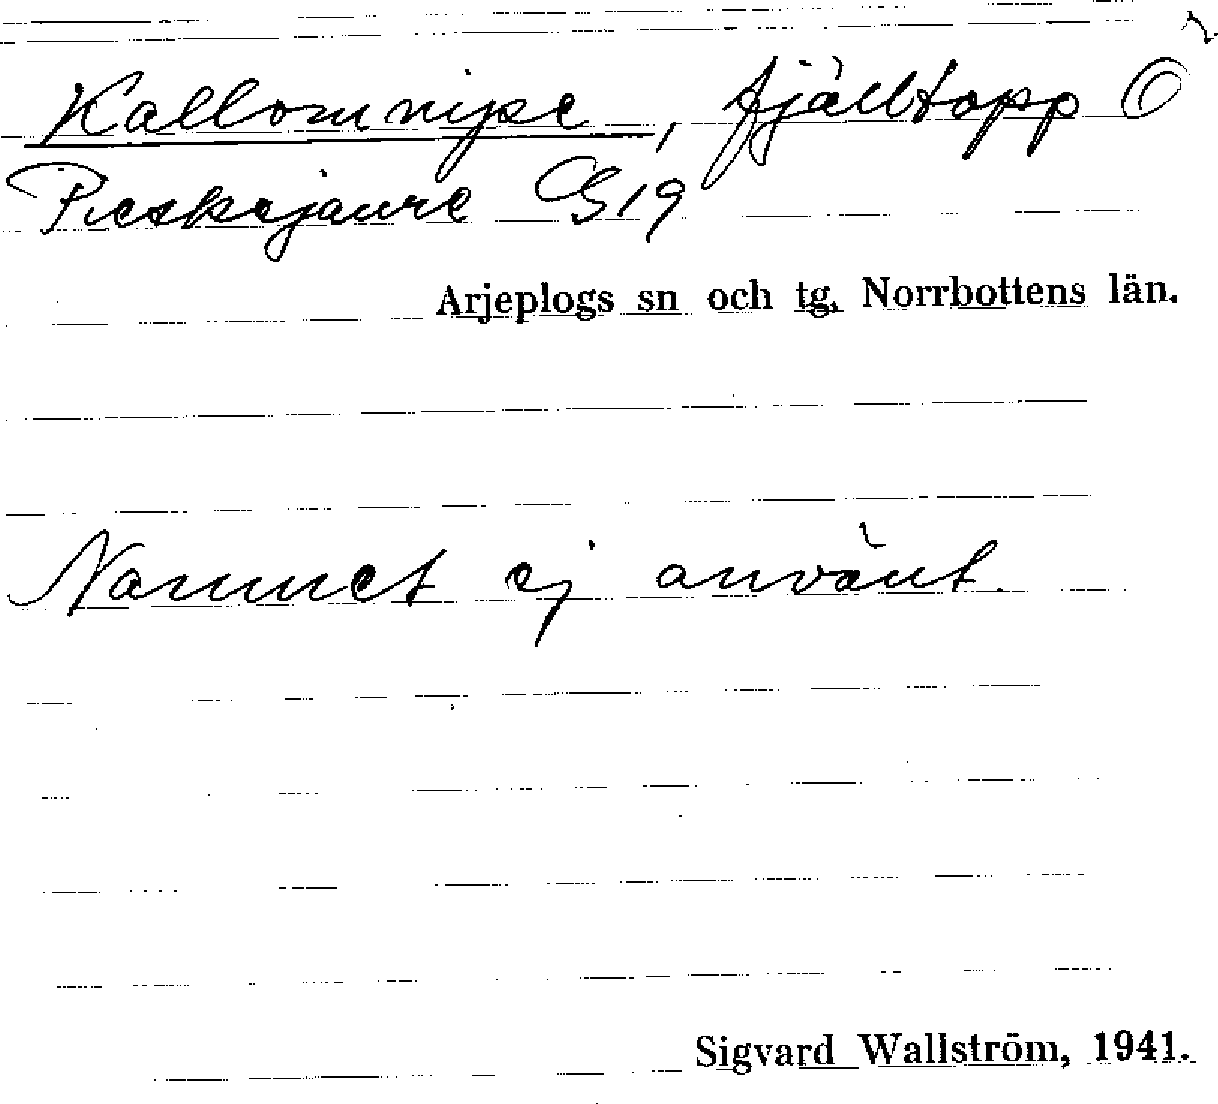 Kallomnipe, fjälltopp O
Pieskejaure G19
Arjeplogs sn och tg. Norrbottens län.
Namnet ej använt.
Sigvard Wallström, 1941.